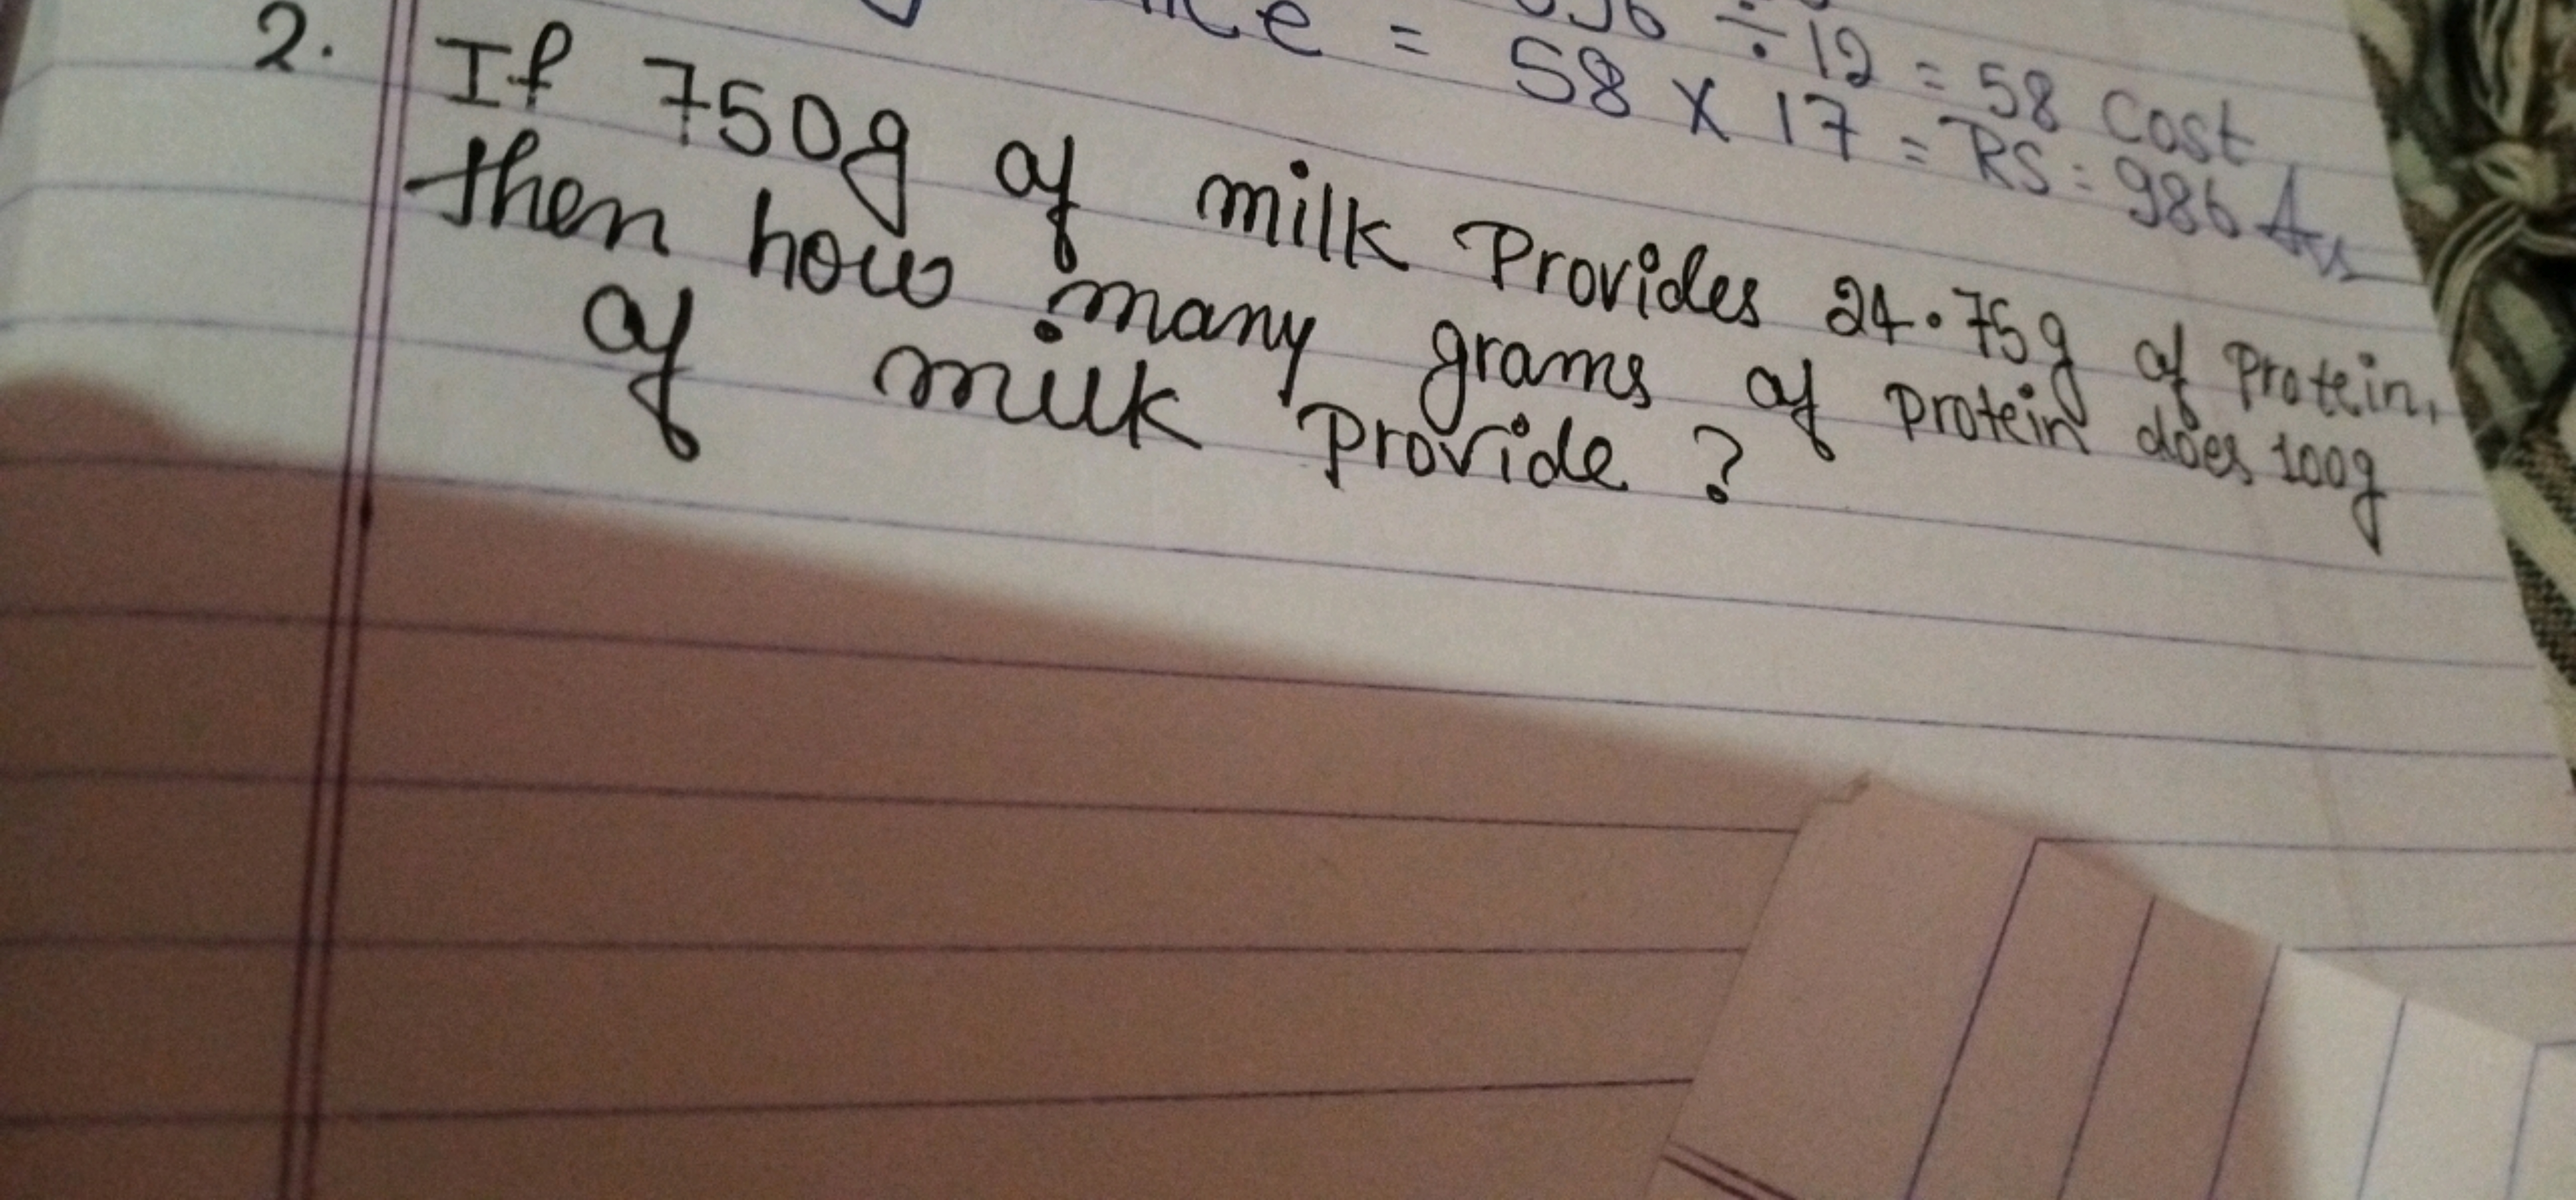 ÷ 12 = 58 Cost
= 58 X 17 = RS : 986 Ans
2. If 750g of milk Provides 24.75g of Protein,
then how many grams of protein does 100g
of milk provide ?